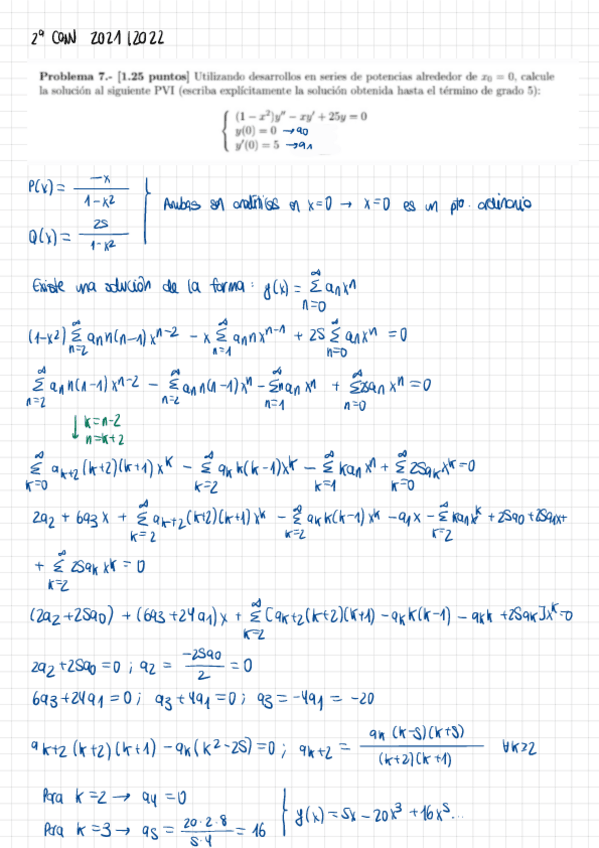 2ª CON 2021/2022
Problema 7.- [1.25 puntos] Utilizando desarrollos en series de potencias alrededor de x₀ = 0, calcule
la solución al siguiente PVI (escriba explícitamente la solución obtenida hasta el término de grado 5):
(1 − x²)y'' − xy' + 25y = 0
y(0) = 0 →a0
y'(0) = 5 →a1
P(x) = -x / 1-x²
Q(x) = 25 / 1-x²
Ambas son analíticas en x=0 → x=0 es un pto. ordinario
Existe una solución de la forma: y(x) = Σ_{n=0}^∞ aₙxⁿ
(1-x²) Σ_{n=2}^∞ aₙn(n-1)xⁿ⁻² - x Σ_{n=1}^∞ aₙnxⁿ⁻¹ + 25 Σ_{n=0}^∞ aₙxⁿ = 0
Σ_{n=2}^∞ aₙn(n-1)xⁿ⁻² - Σ_{n=2}^∞ aₙn(n-1)xⁿ - Σ_{n=1}^∞ naₙxⁿ + Σ_{n=0}^∞ 25aₙxⁿ = 0
↓ k=n-2
n=k+2
Σ_{k=0}^∞ aₖ₊₂(k+2)(k+1)xᵏ - Σ_{k=2}^∞ aₖk(k-1)xᵏ - Σ_{k=1}^∞ kaₙxⁿ + Σ_{k=0}^∞ 25aₖxᵏ = 0
2a₂ + 6a₃x + Σ_{k=2}^∞ aₖ₊₂(k+2)(k+1)xᵏ - Σ_{k=2}^∞ aₖk(k-1)xᵏ - a₁x - Σ_{k=2}^∞ kaₙxᵏ + 25a₀ + 25a₁x+
+ Σ_{k=2}^∞ 25aₖxᵏ = 0
(2a₂+25a₀) + (6a₃+24a₁)x + Σ_{k=2}^∞ [aₖ₊₂(k+2)(k+1) - aₖk(k-1) - aₖk + 25aₖ]xᵏ=0
2a₂+25a₀ = 0 ; a₂ = -25a₀ / 2 = 0
6a₃+24a₁ = 0 ; a₃+4a₁ = 0 ; a₃ = -4a₁ = -20
aₖ₊₂(k+2)(k+1) - aₖ(k²-25) = 0 ; aₖ₊₂ = aₖ(k-5)(k+5) / (k+2)(k+1) ∀k≥2
Para k=2 → a₄ = 0
Para k=3 → a₅ = 20·2·8 / 5·4 = 16
y(x) = 5x - 20x³ + 16x⁵...